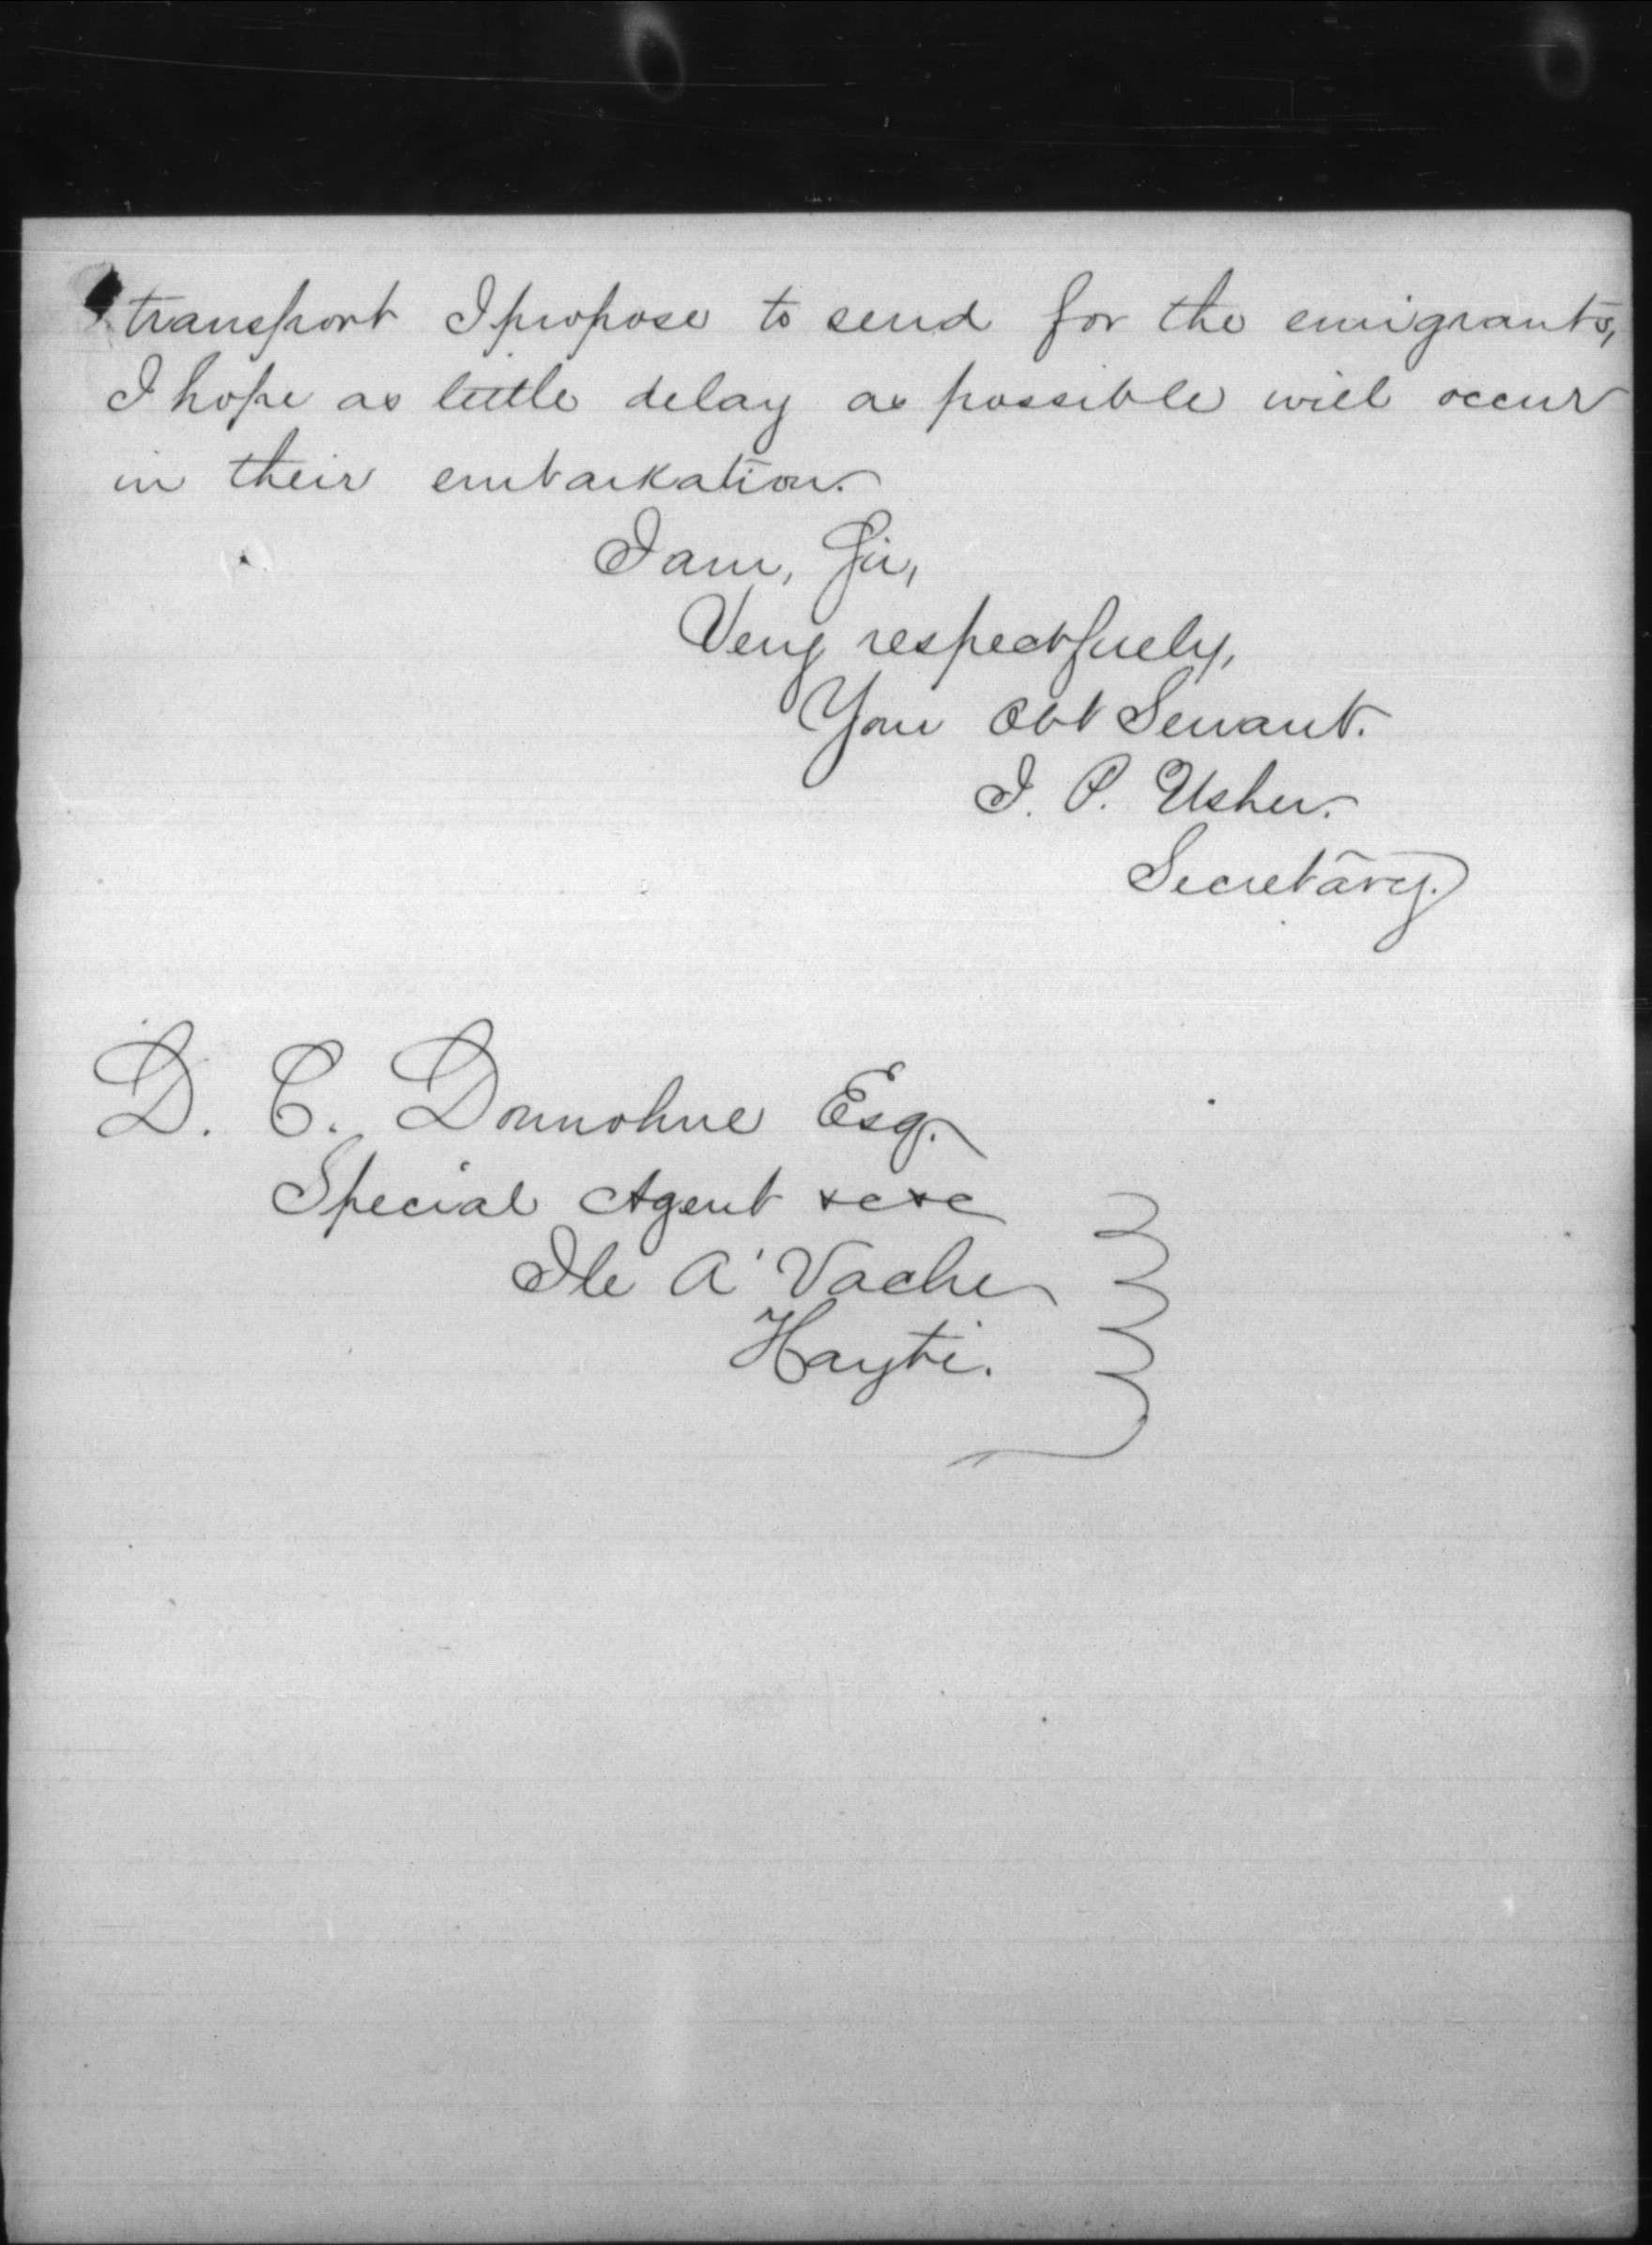 transport I propose to send for the emigrants,
I hope as little delay as possible will occur
in their embarkation.
I am, Sir,
Very respectfully,
Your Obt Servant.
J. P. Usher.
Secretary.
D. C. Donnohue Esq.
Special Agent &c &c
Ile A' Vache
Hayti.